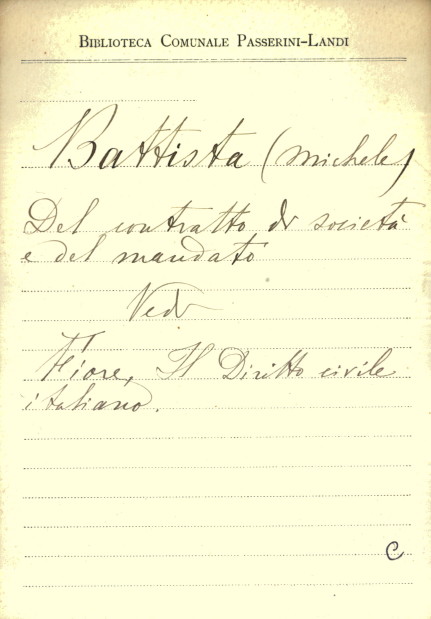 BIBLIOTECA COMUNALE PASSERINI-LANDI
Battista (Michele)
Del contratto di società
e del mandato
Vedi
Fiore, Il Diritto civile
italiano.
C